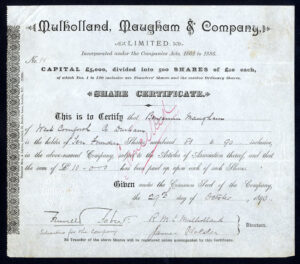 Mulholland, Maugham & Company,
LIMITED.
Incorporated under the Companies Acts, 1862 to 1886.
CAPITAL £5,000, divided into 500 SHARES of £10 each,
of which Nos. 1 to 150 inclusive are Founders' Shares and the residue Ordinary Shares.
SHARE CERTIFICATE.
This is to Certify that Benjamin Maugham
of West Cornforth Co Durham
is the holder of Ten Founders Shares numbered 81 to 90 inclusive,
in the above-named Company, subject to the Articles of Association thereof, and that
the sum of £ 10-0-0 has been paid up upon each of such Shares.
Given under the Common Seal of the Company,
the 29th day of October, 1890
R. M. Mulholland
James
Directors.
Secretary for the Company
No Transfer of the above Shares will be registered unless accompanied by this Certificate.